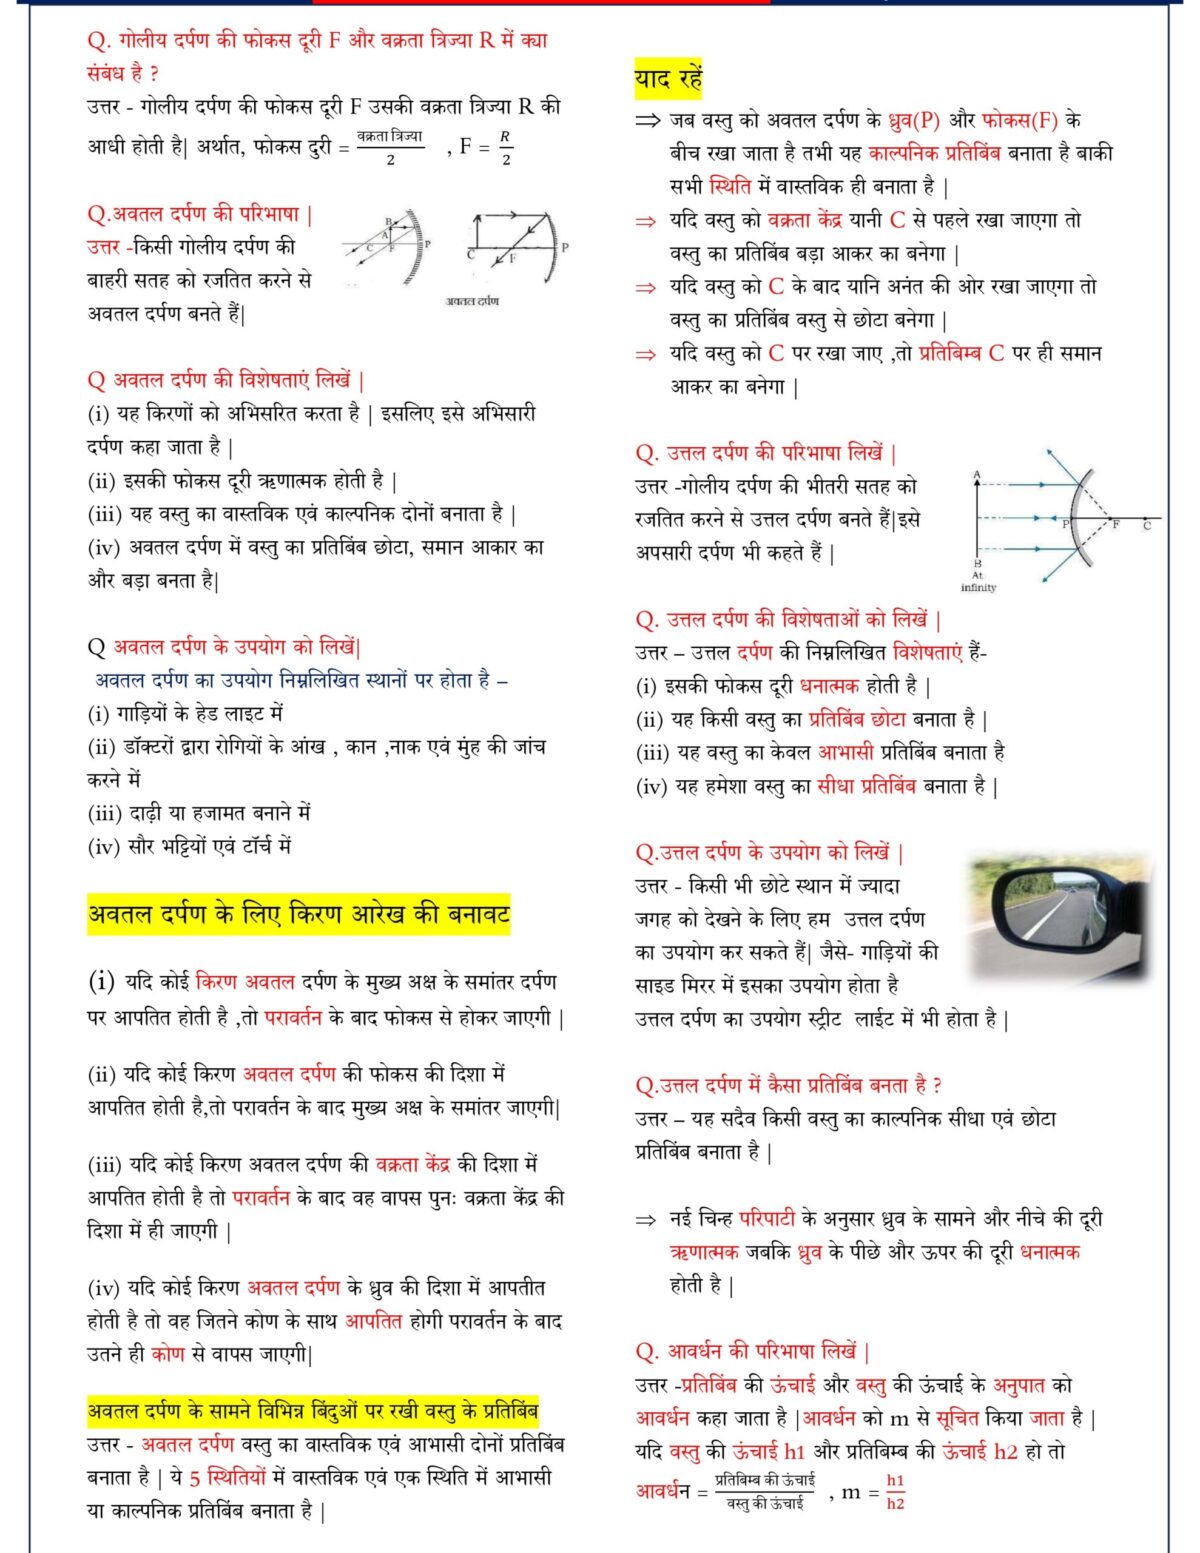 Q. गोलीय दर्पण की फोकस दूरी F और वक्रता त्रिज्या R में क्या
संबंध है ?
उत्तर - गोलीय दर्पण की फोकस दूरी F उसकी वक्रता त्रिज्या R की
आधी होती है| अर्थात, फोकस दुरी = वक्रता त्रिज्या / 2 , F = R / 2
Q.अवतल दर्पण की परिभाषा |
उत्तर -किसी गोलीय दर्पण की
बाहरी सतह को रजतित करने से
अवतल दर्पण बनते हैं|
B
A
C
F
P
C
F
P
अवतल दर्पण
Q अवतल दर्पण की विशेषताएं लिखें |
(i) यह किरणों को अभिसरित करता है | इसलिए इसे अभिसारी
दर्पण कहा जाता है |
(ii) इसकी फोकस दूरी ऋणात्मक होती है |
(iii) यह वस्तु का वास्तविक एवं काल्पनिक दोनों बनाता है |
(iv) अवतल दर्पण में वस्तु का प्रतिबिंब छोटा, समान आकार का
और बड़ा बनता है|
Q अवतल दर्पण के उपयोग को लिखें|
अवतल दर्पण का उपयोग निम्नलिखित स्थानों पर होता है –
(i) गाड़ियों के हेड लाइट में
(ii) डॉक्टरों द्वारा रोगियों के आंख , कान ,नाक एवं मुंह की जांच
करने में
(iii) दाढ़ी या हजामत बनाने में
(iv) सौर भट्टियों एवं टॉर्च में
अवतल दर्पण के लिए किरण आरेख की बनावट
(i) यदि कोई किरण अवतल दर्पण के मुख्य अक्ष के समांतर दर्पण
पर आपतित होती है ,तो परावर्तन के बाद फोकस से होकर जाएगी |
(ii) यदि कोई किरण अवतल दर्पण की फोकस की दिशा में
आपतित होती है,तो परावर्तन के बाद मुख्य अक्ष के समांतर जाएगी|
(iii) यदि कोई किरण अवतल दर्पण की वक्रता केंद्र की दिशा में
आपतित होती है तो परावर्तन के बाद वह वापस पुनः वक्रता केंद्र की
दिशा में ही जाएगी |
(iv) यदि कोई किरण अवतल दर्पण के ध्रुव की दिशा में आपतीत
होती है तो वह जितने कोण के साथ आपतित होगी परावर्तन के बाद
उतने ही कोण से वापस जाएगी|
अवतल दर्पण के सामने विभिन्न बिंदुओं पर रखी वस्तु के प्रतिबिंब
उत्तर - अवतल दर्पण वस्तु का वास्तविक एवं आभासी दोनों प्रतिबिंब
बनाता है | ये 5 स्थितियों में वास्तविक एवं एक स्थिति में आभासी
या काल्पनिक प्रतिबिंब बनाता है |
याद रहें
⇒ जब वस्तु को अवतल दर्पण के ध्रुव(P) और फोकस(F) के
बीच रखा जाता है तभी यह काल्पनिक प्रतिबिंब बनाता है बाकी
सभी स्थिति में वास्तविक ही बनाता है |
⇒ यदि वस्तु को वक्रता केंद्र यानी C से पहले रखा जाएगा तो
वस्तु का प्रतिबिंब बड़ा आकर का बनेगा |
⇒ यदि वस्तु को C के बाद यानि अनंत की ओर रखा जाएगा तो
वस्तु का प्रतिबिंब वस्तु से छोटा बनेगा |
⇒ यदि वस्तु को C पर रखा जाए ,तो प्रतिबिम्ब C पर ही समान
आकर का बनेगा |
Q. उत्तल दर्पण की परिभाषा लिखें |
उत्तर -गोलीय दर्पण की भीतरी सतह को
रजतित करने से उत्तल दर्पण बनते हैं|इसे
अपसारी दर्पण भी कहते हैं |
A
P
F
C
B
At
infinity
Q. उत्तल दर्पण की विशेषताओं को लिखें |
उत्तर – उत्तल दर्पण की निम्नलिखित विशेषताएं हैं-
(i) इसकी फोकस दूरी धनात्मक होती है |
(ii) यह किसी वस्तु का प्रतिबिंब छोटा बनाता है |
(iii) यह वस्तु का केवल आभासी प्रतिबिंब बनाता है
(iv) यह हमेशा वस्तु का सीधा प्रतिबिंब बनाता है |
Q.उत्तल दर्पण के उपयोग को लिखें |
उत्तर - किसी भी छोटे स्थान में ज्यादा
जगह को देखने के लिए हम उत्तल दर्पण
का उपयोग कर सकते हैं| जैसे- गाड़ियों की
साइड मिरर में इसका उपयोग होता है
उत्तल दर्पण का उपयोग स्ट्रीट लाईट में भी होता है |
Q.उत्तल दर्पण में कैसा प्रतिबिंब बनता है ?
उत्तर – यह सदैव किसी वस्तु का काल्पनिक सीधा एवं छोटा
प्रतिबिंब बनाता है |
⇒ नई चिन्ह परिपाटी के अनुसार ध्रुव के सामने और नीचे की दूरी
ऋणात्मक जबकि ध्रुव के पीछे और ऊपर की दूरी धनात्मक
होती है |
Q. आवर्धन की परिभाषा लिखें |
उत्तर -प्रतिबिंब की ऊंचाई और वस्तु की ऊंचाई के अनुपात को
आवर्धन कहा जाता है |आवर्धन को m से सूचित किया जाता है |
यदि वस्तु की ऊंचाई h1 और प्रतिबिम्ब की ऊंचाई h2 हो तो
आवर्धन = प्रतिबिम्ब की ऊंचाई / वस्तु की ऊंचाई , m = h1 / h2